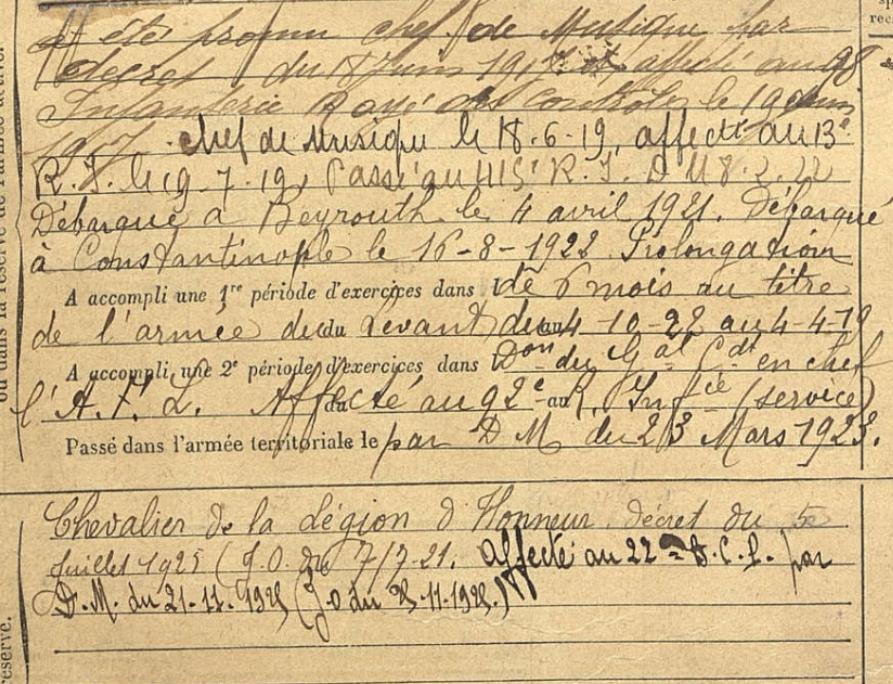 et été promu chef de Musique par
décret du 18 Juin 1917 et affecté au 98
Infanterie Rayé des contrôles le 19 Juin
1917. Chef de Musique le 18.6.19, affecté au 13e
R. I. le 19.7.19, Passé au 415e R. I. D M 8.2.22
Débarqué à Beyrouth le 4 avril 1921. Débarqué
à Constantinople le 16-8-1922 Prolongation
A accompli une 1re période d'exercices dans l de 6 mois au titre
de l'armée du du Levant du au 4-10-22 au 4-4-19
A accompli une 2e période d'exercices dans Don du Gal Cdt en chef
l'A. F. L. Affecté du au 92e au R. Infie (service)
Passé dans l'armée territoriale le par D M du 23 Mars 1923.
Chevalier de la Légion d'Honneur décret du 5
Juillet 1925 (J.O. du 7/7-21. affecté au 22e par
D.M. du 21-11-1925 (J.o du 25-11-1925.)
ou dans la réserve de l'armée active.
réserve.